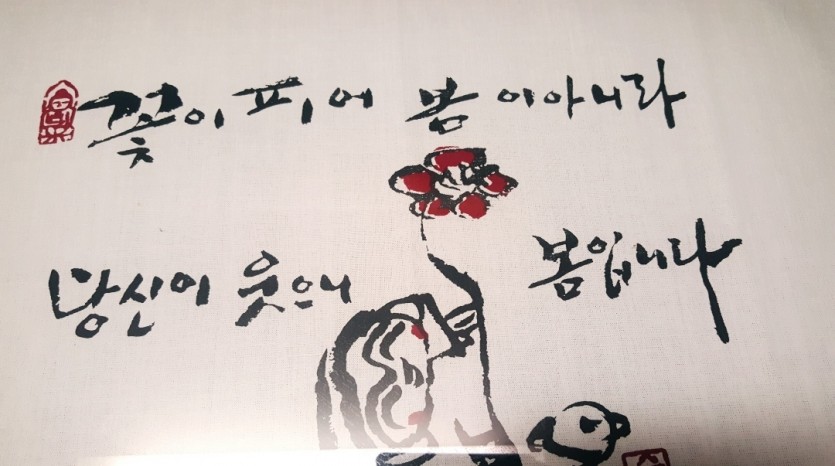 꽃이 피어 봄 이아니라
당신이 웃으니 봄입니다